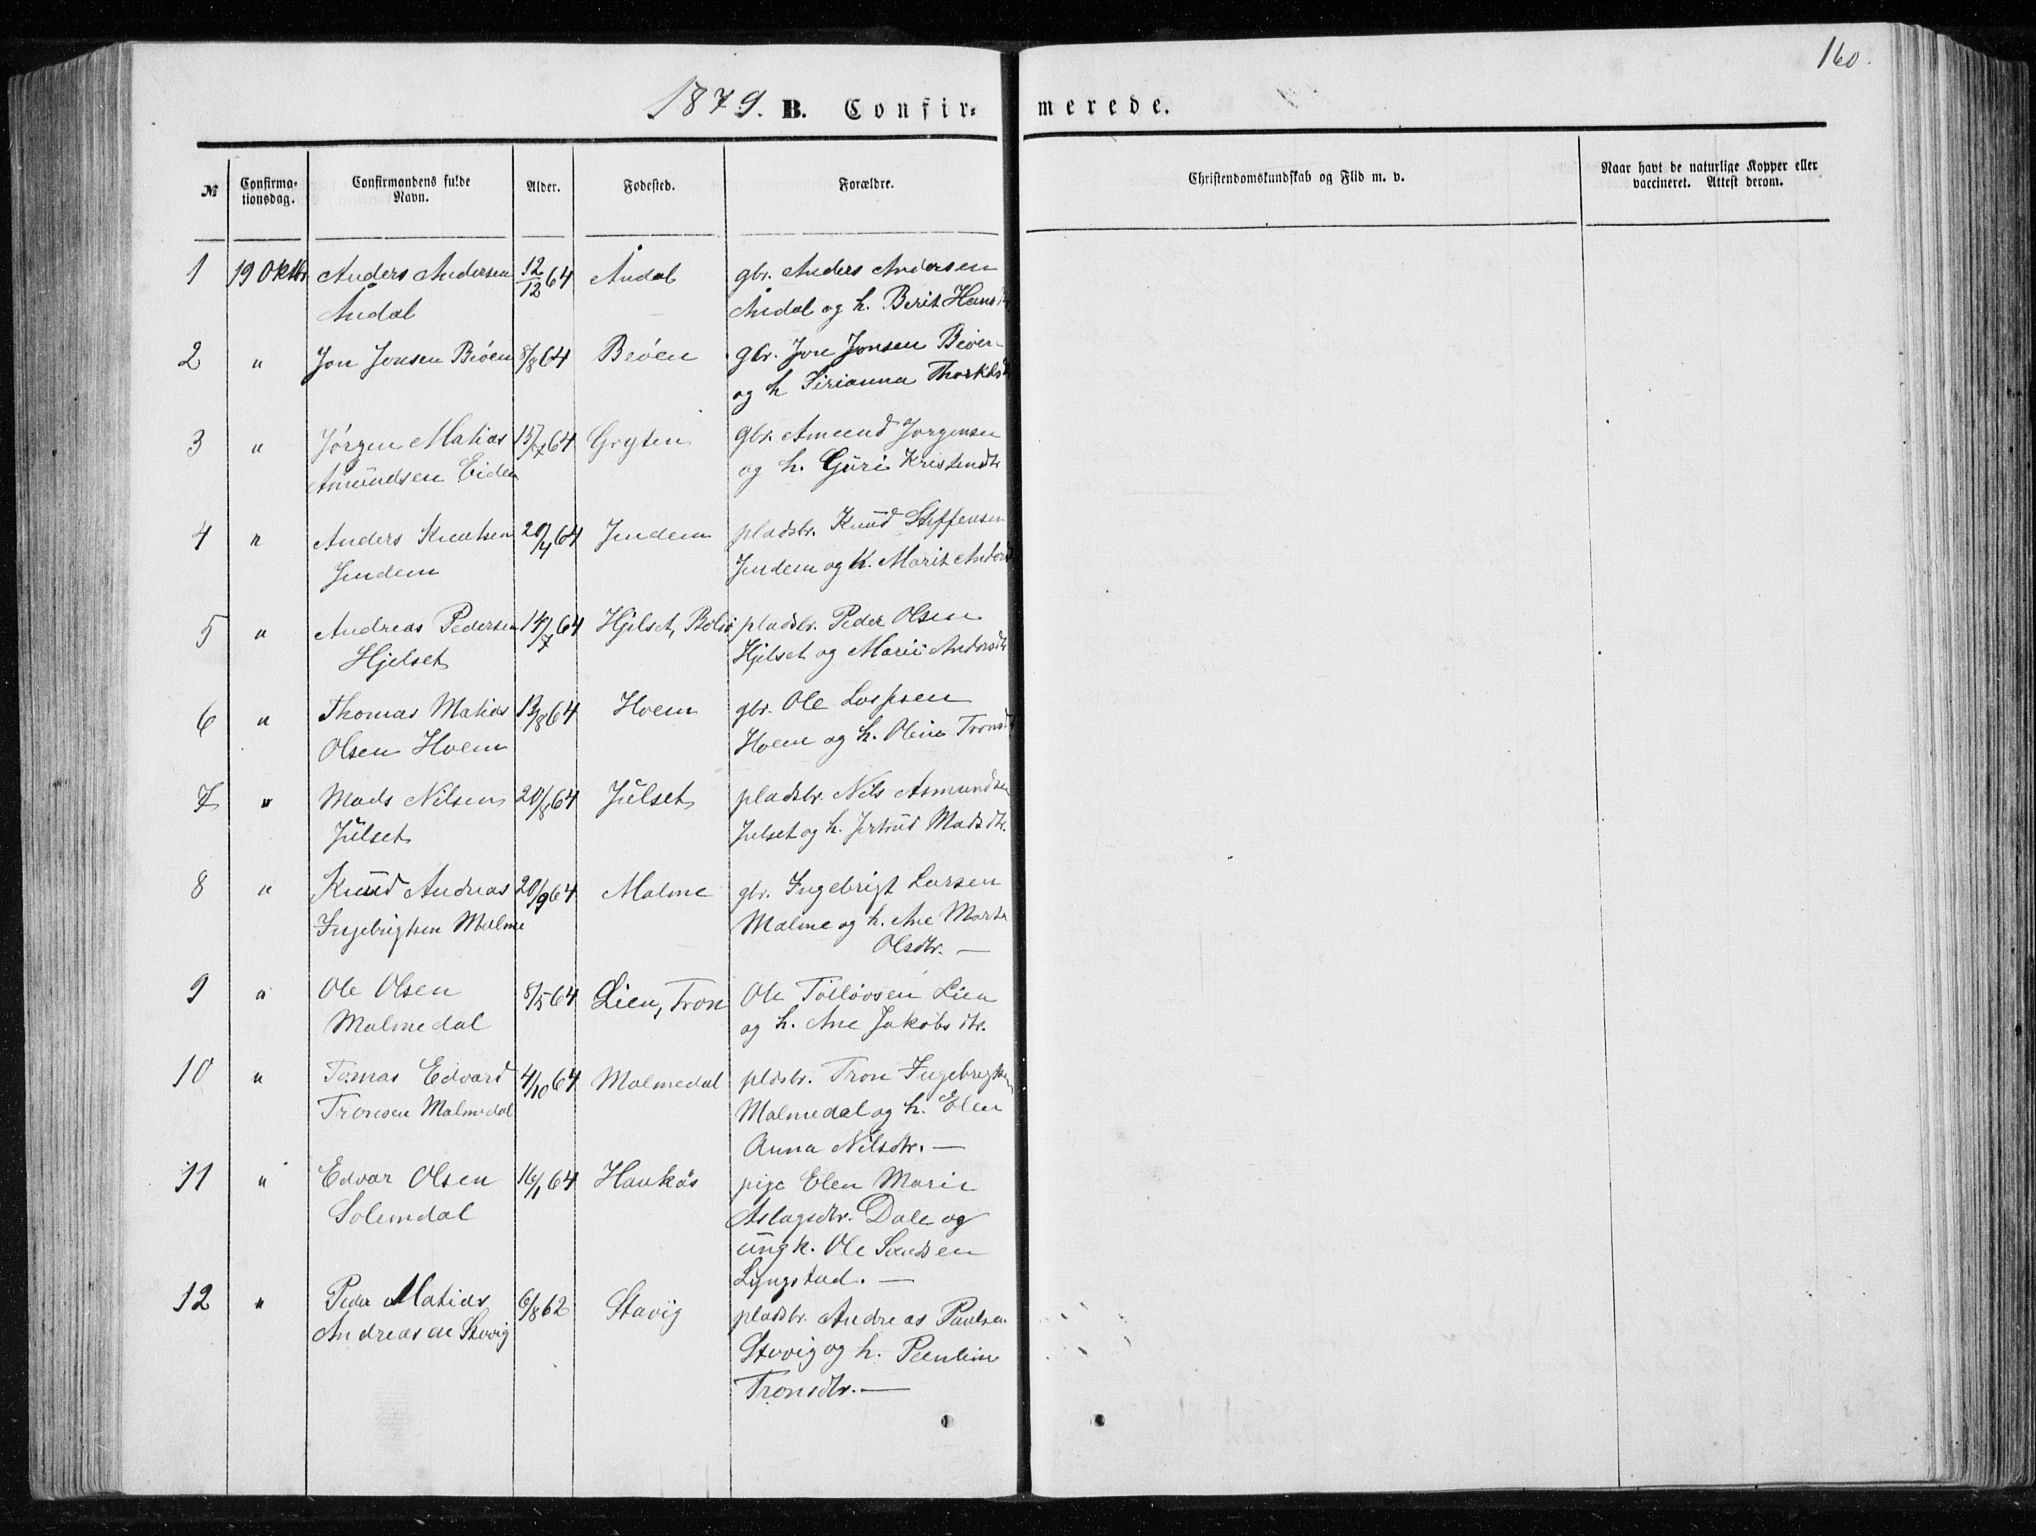 160.
1879. B. Confir- merede.
№ Confirma- tionsdag. Confirmandens fulde Navn. Alder. Fødested. Forældre. Christendomskundskab og Flid m. v. Naar havt de naturlige Kopper eller vaccineret. Attest derom.
1 19 Oktbr. Anders Andersen 12/12 64 Åndal gbr. Anders Andersen
Åndal Åndal og h. Berit Hansd
2 " Jon Jonsen Beöen 8/8 64 Beöen gbr. Jon Jonsen Beöen
og h Sirianna Thorkilsd
3 " Jörgen Matias 64 Gryten gbr. Amund Jorgensen
Amundsen Eiden og h. Guri Kristendtr
4 " Anders Knutsen 20/4 64 Jendem pladsbr. Knud Steffensen
Jendem Jendem og h. Marit Andersd
5 " Andreas Pedersen 14/7 64 Hjelset, Bolsö pladsbr. Peder Olsen
Hjelset Hjelset og Marii Andersdtr
6 " Thomas Matias 13/8 64 Hoem gbr. Ole
Olsen Hoem Hoem og h. Oline Tronsd
7 " Mads Nilsen 20/8 64 Julset pladsbr. Nils Asmundsen
Julset Julset og h. Jertrud Madsdtr.
8 " Knud Andreas 20/9 64 Malme gbr. Ingebrigt Larsen
Ingebrigtsen Malme Malme og h. Ane Marta
Olsdtr. —
9 " Ole Olsen 8/5 64 Lien, Tron Ole Tollövsen Lien
Malmedal og h. Ane Jakobsdtr.
10 " Tomas Edvard 4/10 64 Malmedal pldsbr. Tron Ingebrigtsen
Tronsen Malmedal Malmedal og h. Elen
Anna Nilsdtr. —
11 " Edvar Olsen 16/1 64 Haukås pige Elen Marie
Solemdal Aslagsdtr. Dale og
ungk. Ole
Lyngstad. —
12 " Peder Matias 6/8 62 Stavig pladsbr. Andreas Paulsen
Andreasen Stavig Stavig og h.
Tronsdtr. —